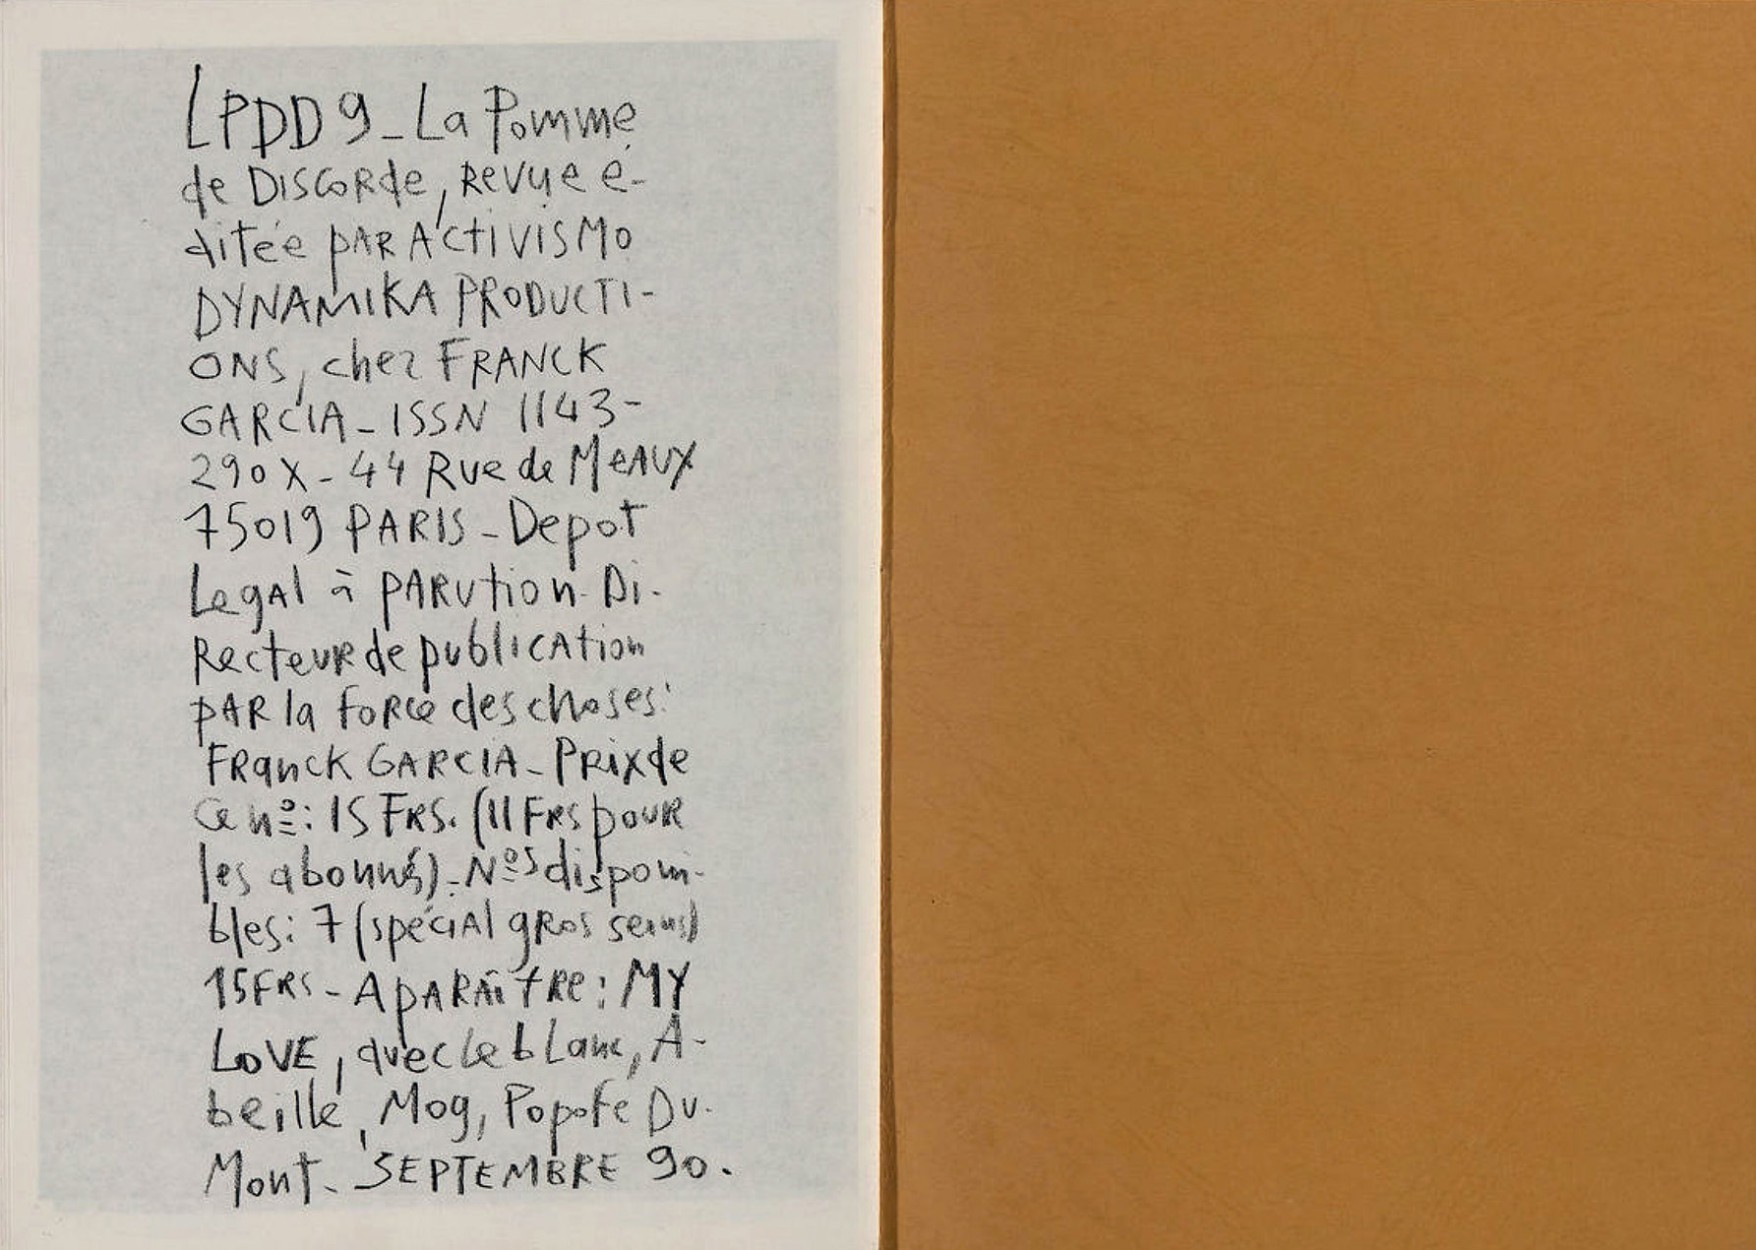 LPDD 9 _ La Pomme
de DISCORde, REVUE é-
ditée PAR ACtiVISMO
DYNAMIKA PRODUCTI-
ONS, chez FRANCK
GARCIA _ ISSN 1143-
290 X - 44 Rue de MeAUX
75019 PARIS - Depot
LegAl à PARUtion - Di-
RecteuR de publicAtion
PAR la foRce des choses:
FRanck GARCIA - Prix de
ce nº: 15 FRS. (11 FRS pouR
les abonnés) - Nºs disponi-
bles: 7 (spéciAl gRos seins)
15 FRS - A pARAîtRe: MY
LoVE, avec Le bLanc, A-
beille, Mog, Popofe Du-
Mont - SEPTEMBRE 90.